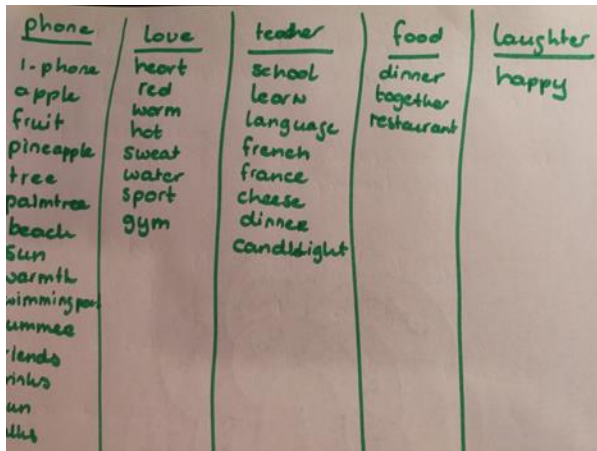 phone
I-phone
apple
fruit
pineapple
tree
palmtree
beach
sun
warmth
wimmingpool
ummer
riends
rinks
un
love
heart
red
warm
hot
sweat
water
sport
gym
teacher
school
learn
language
french
france
cheese
dinner
candlelight
food
dinner
together
restaurant
laughter
happy